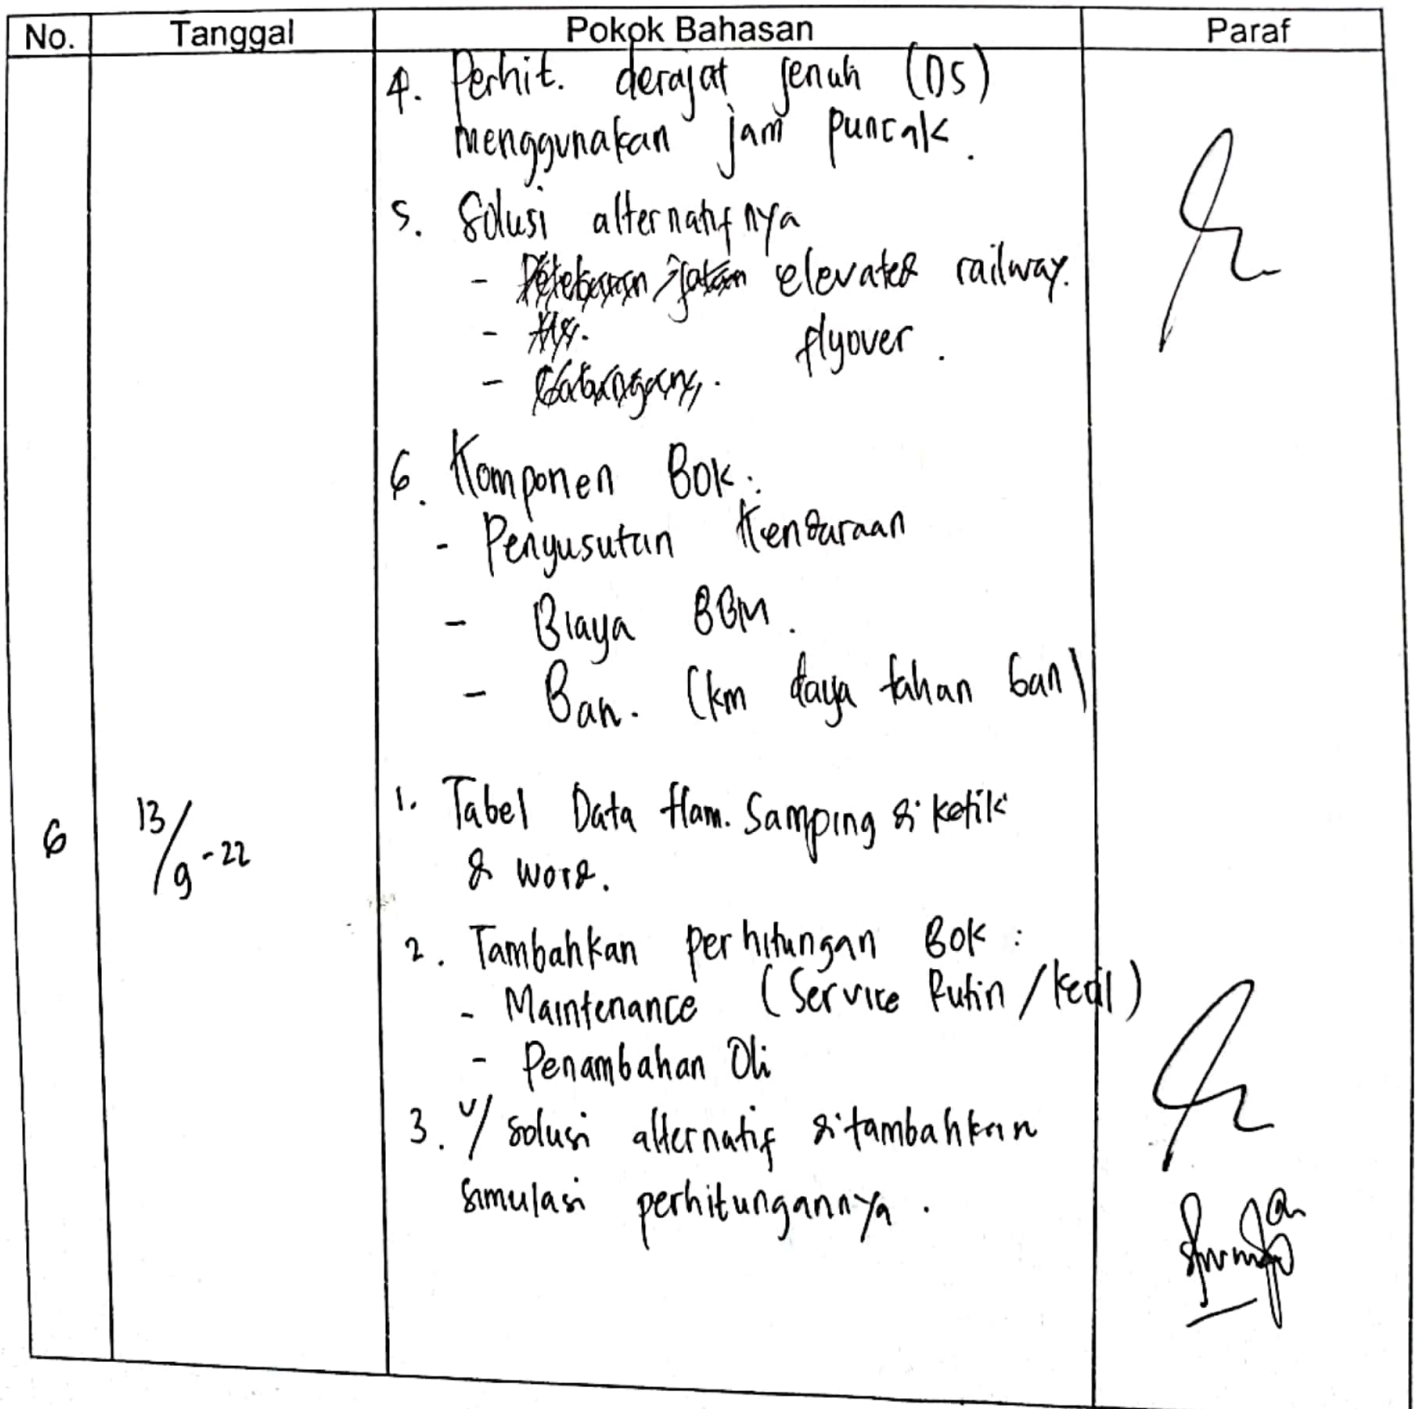 No. Tanggal Pokok Bahasan Paraf
4. Perhit. derajat jenuh (DS)
menggunakan jam puncak.
5. Solusi alternatifnya
- elevated railway.
- flyover.
-
6. Komponen BOK:
- Penyusutan Kendaraan
- Biaya BBM.
- Ban. (km daya tahan ban)
6 13/9-22 1. Tabel Data Ham. Samping di ketik
d word.
2. Tambahkan perhitungan BOK :
- Maintenance (Service Rutin / kecil)
- Penambahan Oli
3. u/ solusi alternatif ditambahkan
simulasi perhitungannya.